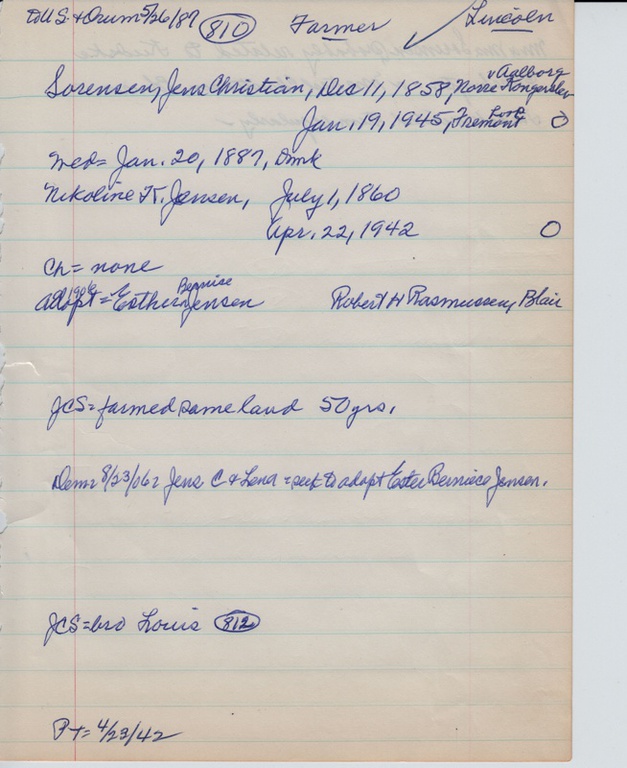 to U.S. & Orum 5/26/87 810 Farmer ✓ Lincoln
v Aalborg
Sorensen, Jens Christian, Dec 11, 1858, Norre Kongerslev
Jan. 19, 1945, Fremont O
Wed= Jan. 20, 1887, Dmk
Nikoline K. Jensen, July 1, 1860
Apr. 22, 1942 O
Ch = none
1906 Bernise
adopt = Esther Jensen Robert H Rasmussen, Blair
JCS = farmed same land 50 yrs.
Dem= 8/23/06= Jens C & Lena = seek to adopt Ester Berniece Jensen.
JCS = bro Louis 812
PT = 4/23/42